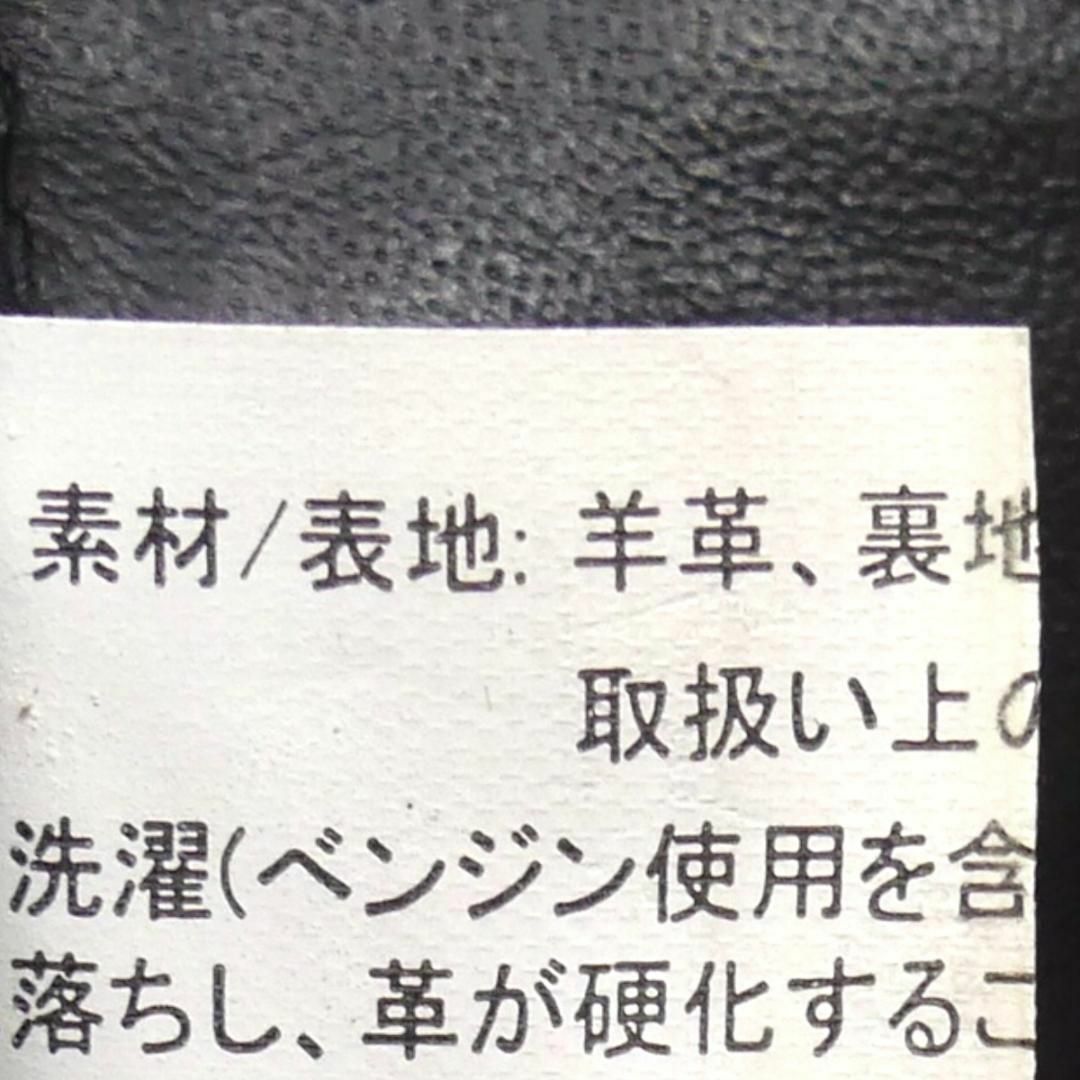 素材/表地: 羊革、裏地
取扱い上の
洗濯(ベンジン使用を含
落ちし、革が硬化するこ